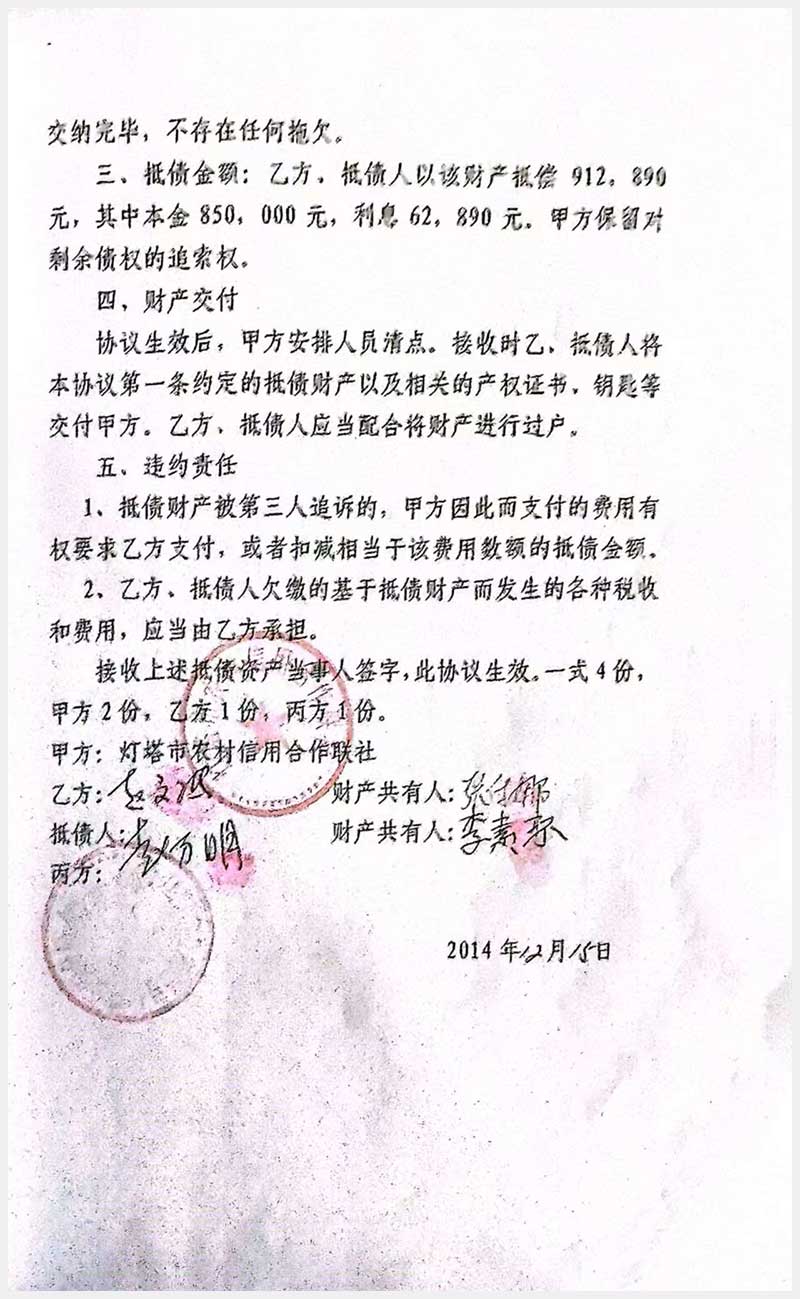 交纳完毕，不存在任何拖欠。
三、抵债金额：乙方、抵债人以该财产抵偿 912，890
元，其中本金 850，000 元，利息 62，890 元。甲方保留对
剩余债权的追索权。
四、财产交付
协议生效后，甲方安排人员清点。接收时乙、抵债人将
本协议第一条约定的抵债财产以及相关的产权证书、钥匙等
交付甲方。乙方、抵债人应当配合将财产进行过户。
五、违约责任
1、抵债财产被第三人追诉的，甲方因此而支付的费用有
权要求乙方支付，或者扣减相当于该费用数额的抵债金额。
2、乙方、抵债人欠缴的基于抵债财产而发生的各种税收
和费用，应当由乙方承担。
接收上述抵债资产当事人签字，此协议生效。一式 4 份，
甲方 2 份，乙方 1 份，丙方 1 份。
甲方：灯塔市农村信用合作联社
乙方： 财产共有人：
抵债人： 财产共有人：李素
丙方：
2014 年 12 月 15 日